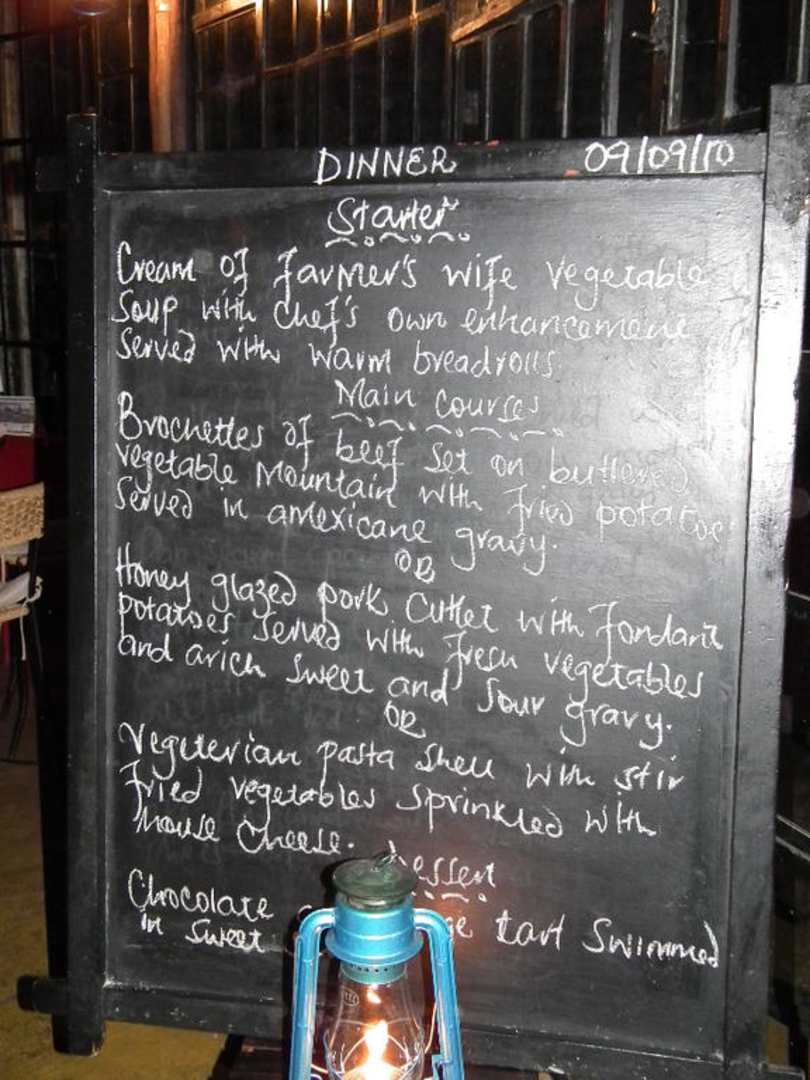 DINNER 09/09/10
Starter
Cream of farmer's wife vegetable
Soup with Chef's own enhancement
Served with warm breadrolls.
Main courses
Brochettes of beef set on buttered
vegetable Mountain with fried potatoe
Served in amexicane gravy.
OR
Honey glazed pork cutlet with fondant
potatoes served with fresh vegetables
and arich sweet and sour gravy.
OR
Vegeterian pasta shell with stir
fried vegetables sprinkled with
mouse cheese.
Dessert
Chocolate tart Swimmed
in sweet